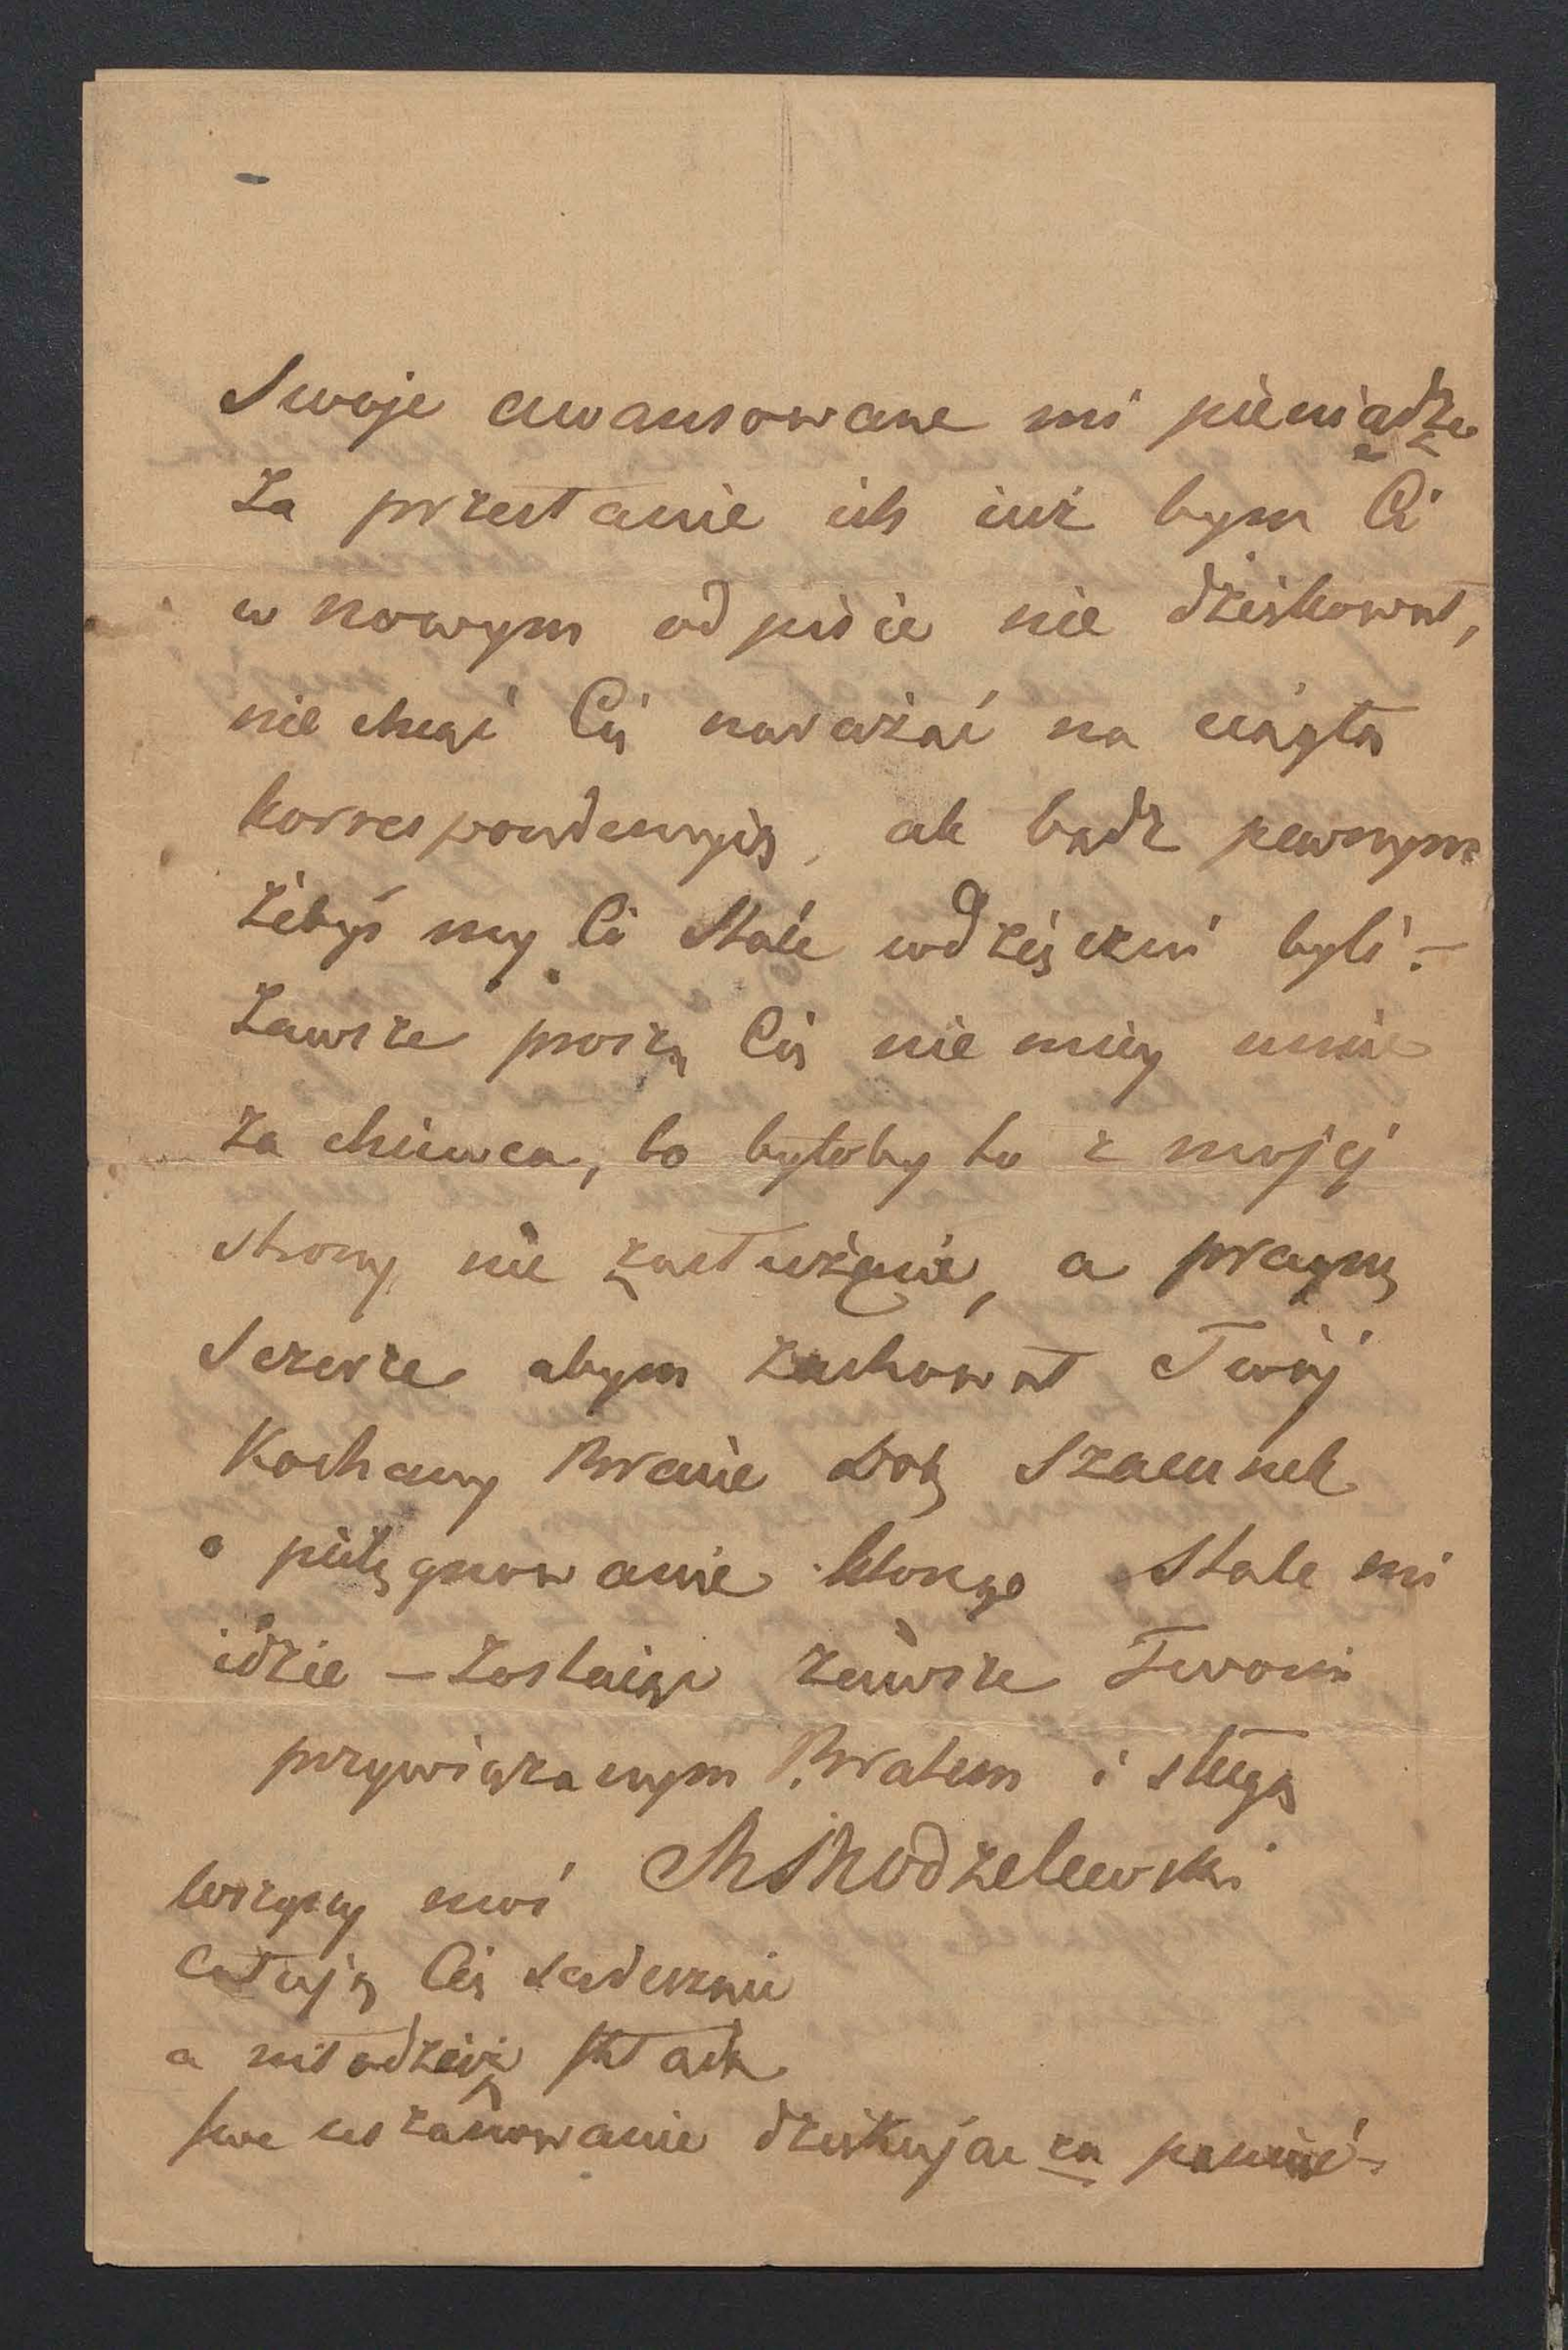 Swoje awansowane mi pieniądze
za przesłanie ich iuż bym Ci
w nowym odpisie nie dziękował,
nie chcąc Cię narażać na ciągłą
korrespondencyią, ale bądz pewnym
żebyś my Ci stale wdzięczni byli –
Zawsze proszę Cię nie miey mnie
za chciwca, bo byłoby to z mojej
strony nie zasłużenie, a pragnę
szczerze abym zachował Twój
Kochany Bracie Dob szacunek
o pielęgnowanie ktorego stale mi
idzie – Zostaiąc zawsze Twoim
przywiązanym Bratem i sługą
MModzelewski
wszyscy moi
całują Cię serdecznie
a młodzież składa
swe uszanowanie dziękując za pamięć –